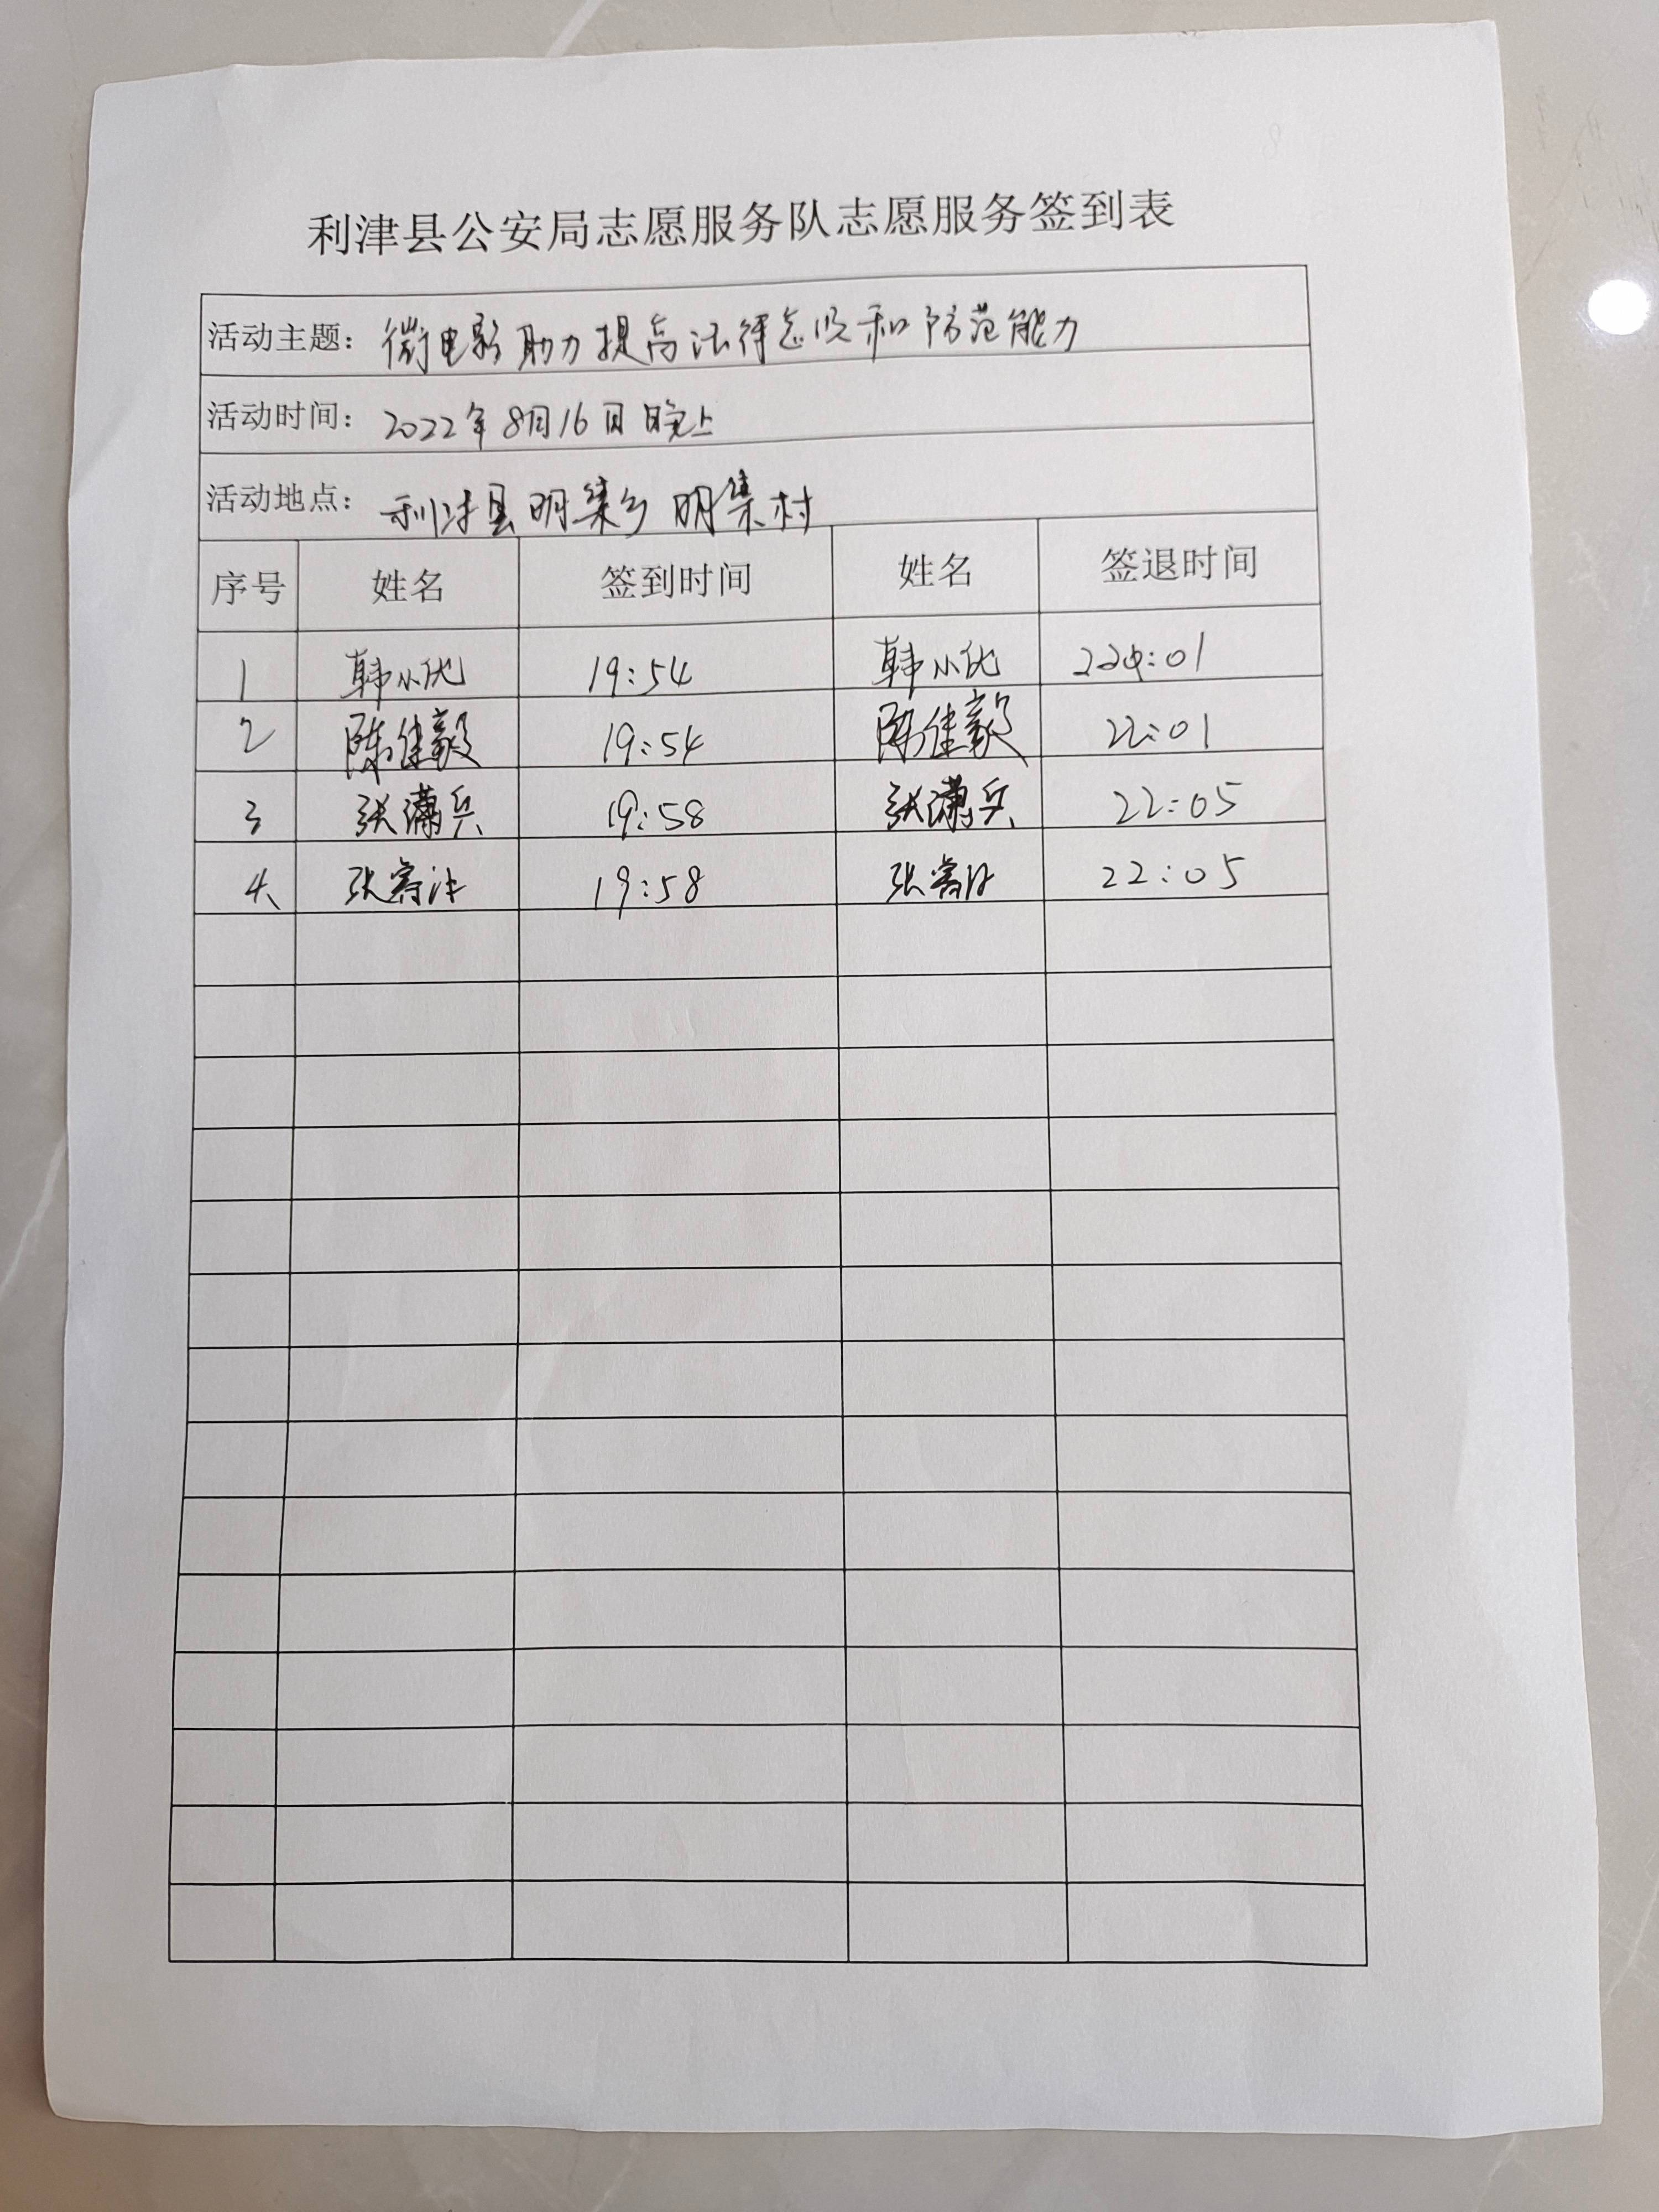 利津县公安局志愿服务队志愿服务签到表
活动主题：微电影助力提高法律意识和防范能力
活动时间：2022年8月16日晚上
活动地点：利津县明集乡明集村
序号 姓名 签到时间 姓名 签退时间
1 韩小优 19:54 韩小优 :01
2 陈佳毅 19:54 陈佳毅 22:01
3 张潇兵 19:58 张潇兵 22:05
4 张 19:58 张 22:05